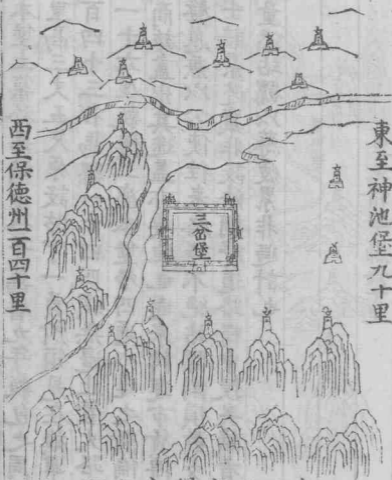 東至神池堡九十里
三岔堡
西至保德州一百四十里